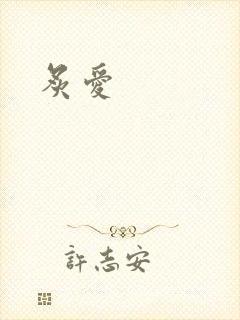 炙愛
許志安